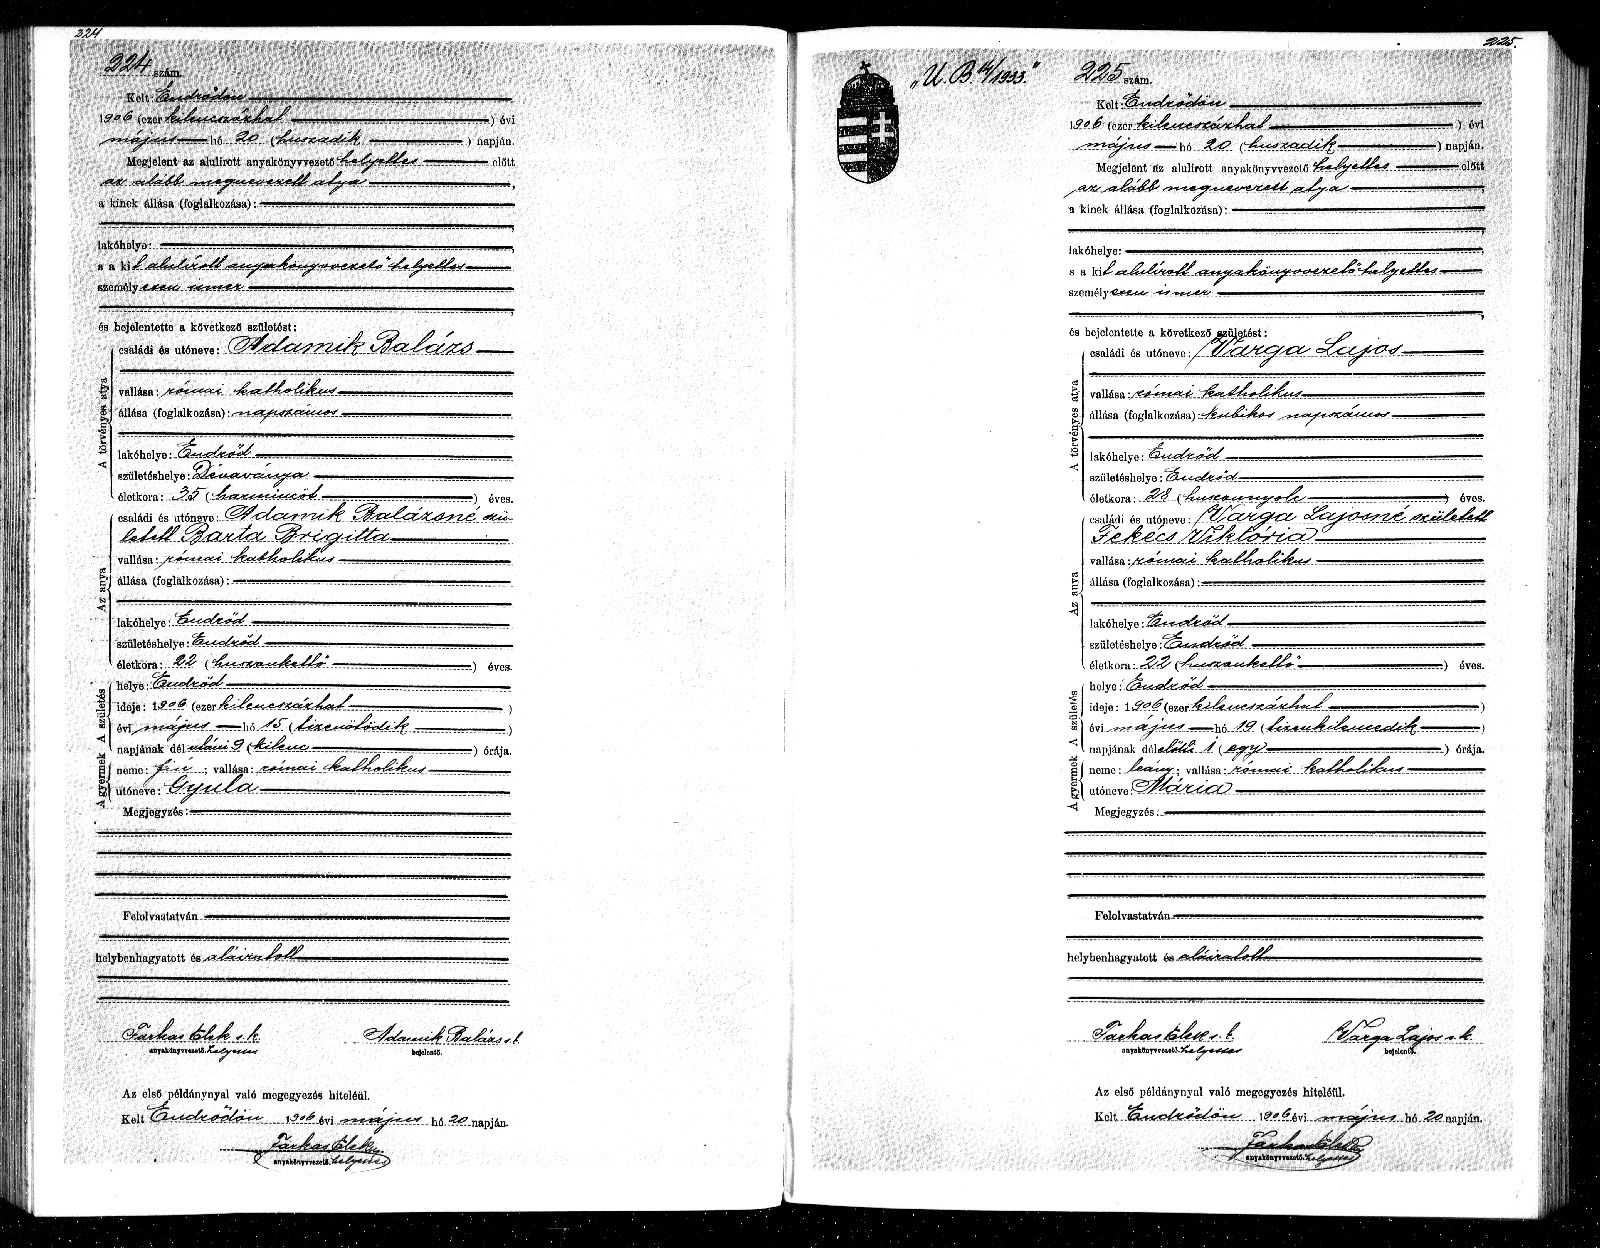 224
224 szám.
Kelt Endrődön
1906 (ezer kilencszázhat ) évi
május hó 20 (huszadik ) napján.
Megjelent az alulirott anyakönyvvezető helyettes előtt
az alább megnevezett atya ,
a kinek állása (foglalkozása):
lakóhelye:
s a kit alulírott anyakönyvvezető helyettes
személyesen ismer
és bejelentette a következő születést:
A törvényes atya
családi és utóneve: Adamik Balázs
vallása: római katholikus
állása (foglalkozása): napszámos
lakóhelye: Endrőd
születéshelye: Dévaványa
életkora: 35 (harmincöt ) éves.
Az anya
családi és utóneve: Adamik Balázsné szü-
letett Barta Brigitta
vallása: római katholikus
állása (foglalkozása):
lakóhelye: Endrőd
születéshelye: Endrőd
életkora: 22 (huszonkettő ) éves.
A gyermek A születés
helye: Endrőd
ideje: 1906 (ezer kilencszázhat )
évi május hó 15 (tizenötödik )
napjának dél utáni 9 (kilenc ) órája.
neme: fiú ; vallása: római katholikus
utóneve: Gyula
Megjegyzés:
Felolvastatván
helybenhagyatott és aláiratott
Farkas Elek s.k. Adamik Balázs s.k.
anyakönyvvezető. helyettes bejelentő.
Az első példánynyal való megegyezés hiteléül.
Kelt Endrődön 1906 évi május hó 20 napján.
Farkas Elek
anyakönyvvezető. helyettes
225.
„U. B. 14/1933."
225 szám.
Kelt: Endrődön
1906 (ezer kilencszázhat ) évi
május hó 20 (huszadik ) napján.
Megjelent az alulirott anyakönyvvezető helyettes előtt
az alább megnevezett atya
a kinek állása (foglalkozása):
lakóhelye:
s a kit alulírott anyakönyvvezető helyettes
személyesen ismer
és bejelentette a következő születést:
A törvényes atya
családi és utóneve: Varga Lajos
vallása: római katholikus
állása (foglalkozása): kubikos napszámos
lakóhelye: Endrőd
születéshelye: Endrőd
életkora: 28 (huszonnyolc ) éves.
Az anya
családi és utóneve: Varga Lajosné született
Fekécs Viktória
vallása: római katholikus
állása (foglalkozása):
lakóhelye: Endrőd
születéshelye: Endrőd
életkora: 22 (huszonkettő ) éves.
A gyermek A születés
helye: Endrőd
ideje: 1906 (ezer kilencszázhat )
évi május hó 19 (tizenkilencedik )
napjának dél előtti 1 (egy ) órája.
neme: leány; vallása: római katholikus
utóneve: Mária
Megjegyzés:
Felolvastatván
helybenhagyatott és aláiratott
Farkas Elek s.k. Varga Lajos s.k.
anyakönyvvezető. helyettes bejelentő.
Az első példánynyal való megegyezés hiteléül.
Kelt Endrődön 1906 évi május hó 20 napján.
Farkas Elek
anyakönyvvezető. helyettes